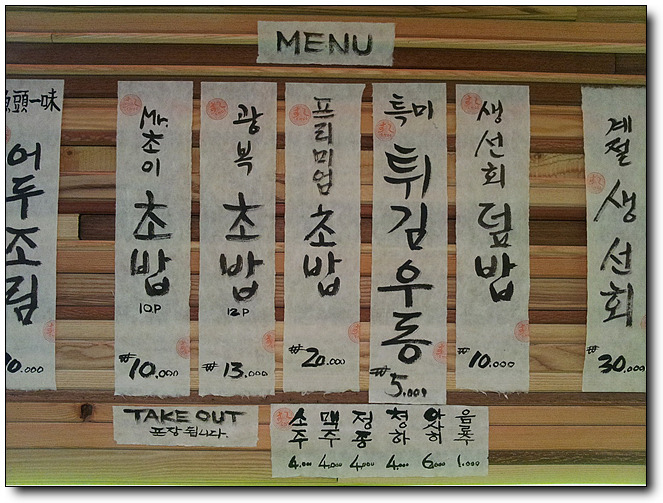 MENU
魚頭一味
어두조림
0.000
Mr.초이
초밥
10P
₩10.000
광복
초밥
12P
₩13.000
프리미엄
초밥
₩20.000
특미
튀김우동
₩5.000
생선회
덮밥
₩10.000
계절
생선회
₩30.000
TAKE OUT
포장 됩니다.
소주 4.000
맥주 4.000
정종 4.000
청하 4.000
6.000
음료수 1.000